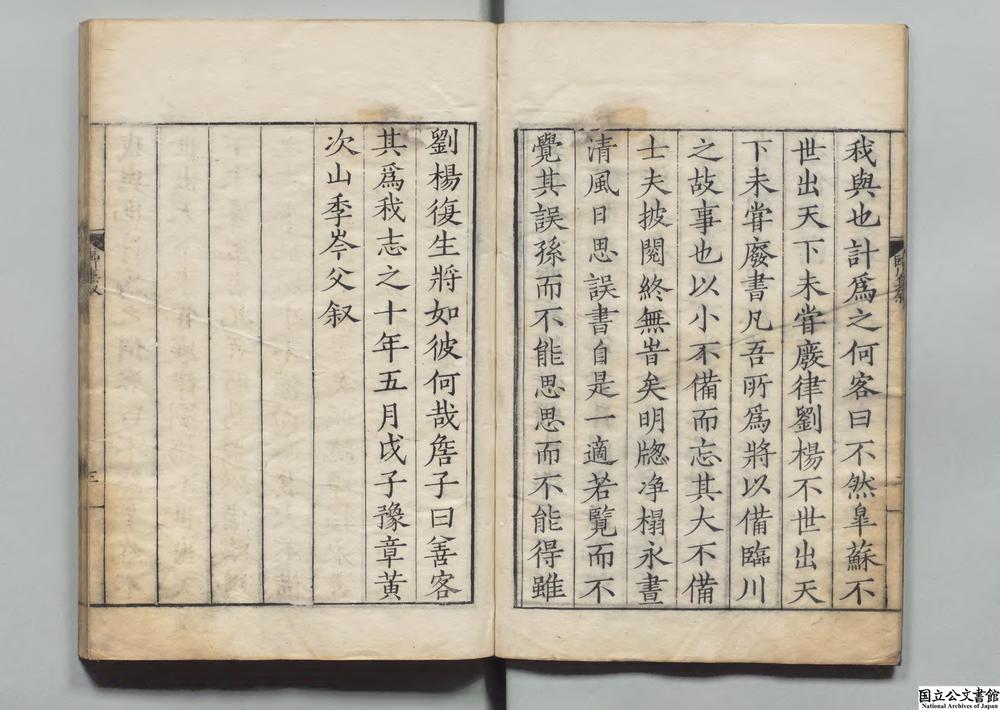 我與也計爲之何客曰不然皐蘇不
世出天下未甞廢律劉楊不世出天
下未甞廢書凡吾所爲將以備臨川
之故事也以小不備而忘其大不備
士夫披閱終無旹矣明牕净榻永晝
清風日思誤書自是一適若覽而不
覺其誤孫而不能思思而不能得雖
劉楊復生將如彼何哉詹子曰善客
其爲我志之十年五月戊子豫章黃
次山季岑父叙
三
国立公文書館
National Archives of Japan